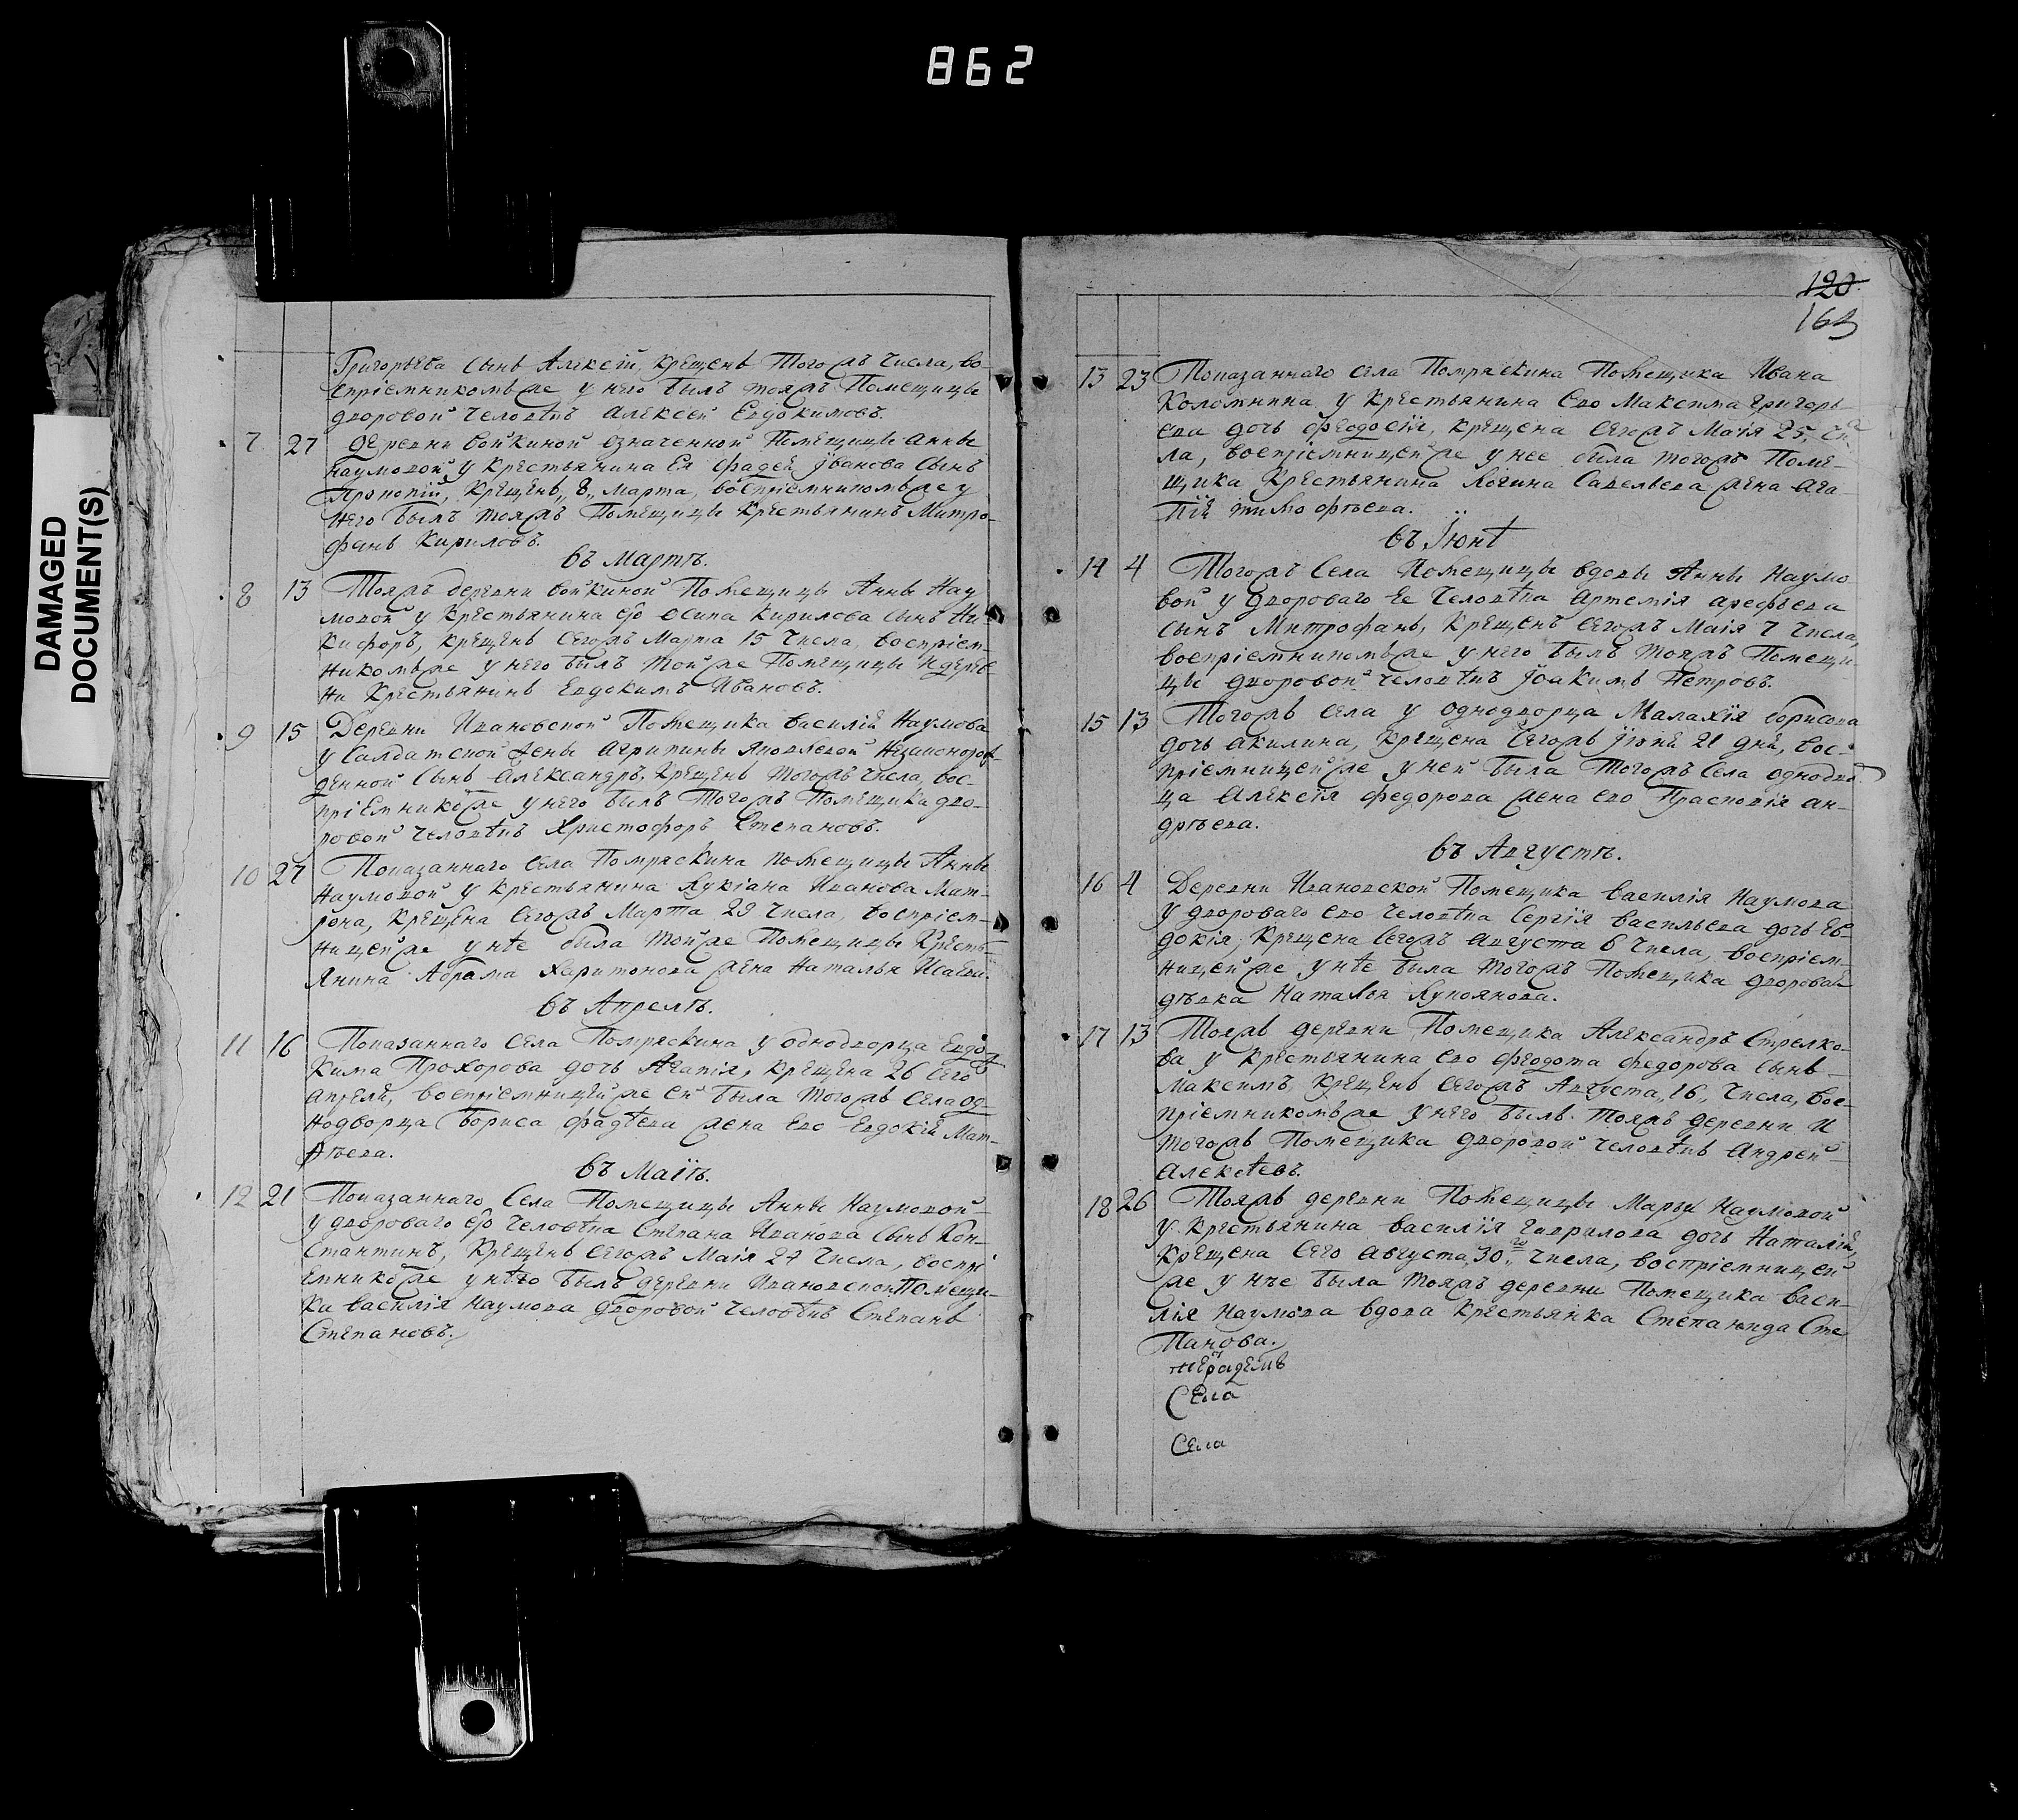 862
DAMAGED
DOCUMENT(S)
Григорьева сынъ Алексій, крещенъ тогожъ числа, во-
спріемникомъ же у него былъ тояжъ Помещицы
дворовой человѣкъ Алексей Евдокимовъ.
7 27 Деревни Войкиной означенной Помещицы Анны
Наумовой у крестьянина Ея Фадея Іванова сынъ
Прокопій, крещенъ „8„ Марта, воспріемникомъ же у
него былъ тояжъ Помещицы крестьянинъ Митро-
фанъ Кириловъ.
въ Мартѣ.
8 13 Тояжъ деревни Войкиной Помещицы Анны Нау
мовой у крестьянина ея Осипа Кирилова сынъ Ни-
кифоръ, крещенъ сегожъ Марта 15 числа, воспріем-
никомъже у него былъ тойже Помещицы и дерев-
ни крестьянинъ Евдокимъ Ивановъ.
9 15 Деревни Ивановской Помещика Василія Наумова
у салдатской жены Агрипины Яковлевой незаконорож-
денной сынъ Александръ, крещенъ тогожъ числа, вос-
пріемникоже у него былъ тогожъ Помещика дво-
ровой человѣкъ Христофоръ Степановъ.
10 27 Показаннаго села Помряскина помещицы Анны
Наумовой у крестьянина Лукіана Иванова Мат-
рона, крещена сегожъ Марта 29 числа, воспріем-
ницейже у нѣе была тойже Помещицы кресть-
янина Абрама Харитонова жена Наталья Исаева.
въ Апрелѣ.
11 16 Показаннаго села Помряскина у однодворца Евдо
кима Прохорова дочь Агапія, крещена 26 сего
апреля, воспріемницейже ей была тогожъ села од-
нодворца Бориса Фадѣева жена ево Евдокія Мат-
фѣева.
въ Маїѣ.
12 21 Показаннаго села Помещицы Анны Наумовой
у двороваго ея человѣка Степана Иванова сынъ Кон-
стантинъ, крещенъ сегожъ Маія 27 числа, воспрі
емникоже у нѣго былъ деревни Ивановской Помещи-
ка Василія Наумова дворовой человѣкъ Степанъ
Степановъ.
120
163
13 23 Показаннаго села Помряскина Помещика Ивана
Коломнина у крестьянина ево Максима Григорь-
ева дочь Феодосія, крещена сегожъ Маія 25, чи
ла, воспріемницейже у нее была тогожъ Поме-
щика крестьянина Логина Савельева жена Ага-
пія Тимофѣева.
въ Їюнѣ
14 4 Тогожъ села Помещицы вдовы Анны Наумо
вой у двороваго ее человѣка Артемія Арефьева
сынъ Митрофанъ, крещенъ сегожъ Маія 7 числа,
воспріемникомъже у него былъ тояжъ Помещи-
цы дворовой человѣкъ Іоакимъ Петровъ.
15 13 Тогожъ села у однодворца Малахія Борисова
дочь Акилина, крещена сегожъ Іюня 21 дня, вос-
пріемницейже у ней была тогожъ села однодво
ца Алексія Федорова жена ево Прасковія Ан-
дрѣева.
въ Августѣ.
16 4 Деревни Ивановской Помещика Василія Наумова
у двороваго ево человѣка Сергія Васильева дочь Ев-
докія, крещена сегожъ Августа 6 числа, воспріем-
ницейже у нѣе была тогожъ Помещика дворовая
дѣвка Наталья Лукоянова.
17 13 Тояжъ деревни Помещика Александръ Стрелко-
ва у крестьянина ево Феодота Федорова сынъ
Максимъ, крещенъ сегожъ Августа, 16, числа, вос-
пріемникомъже у него былъ тояжъ деревни и
тогожъ Помещика дворовой человѣкъ Андрей
Алексѣевъ.
18 26 Тояжъ деревни Помещицы Марьи Наумовой
у крестьянина Василія Гаврилова дочь Наталія,
крещена сего Августа 30го числа, воспріемницей
же у нѣе была тояжъ деревни Помещика Васи-
лія Наумова вдова крестьянка Степанида Сте
панова.
Села
Села